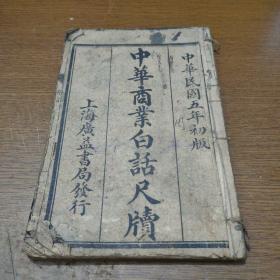 中華民國五年初版
中華商業白話尺牘
上海廣益書局發行